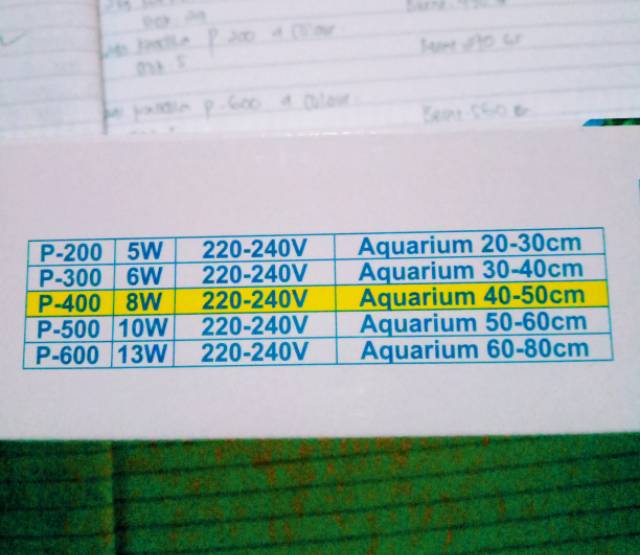 P 200 4 Colour
P-600 4 Colour
P-200 5W 220-240V Aquarium 20-30cm
P-300 6W 220-240V Aquarium 30-40cm
P-400 8W 220-240V Aquarium 40-50cm
P-500 10W 220-240V Aquarium 50-60cm
P-600 13W 220-240V Aquarium 60-80cm